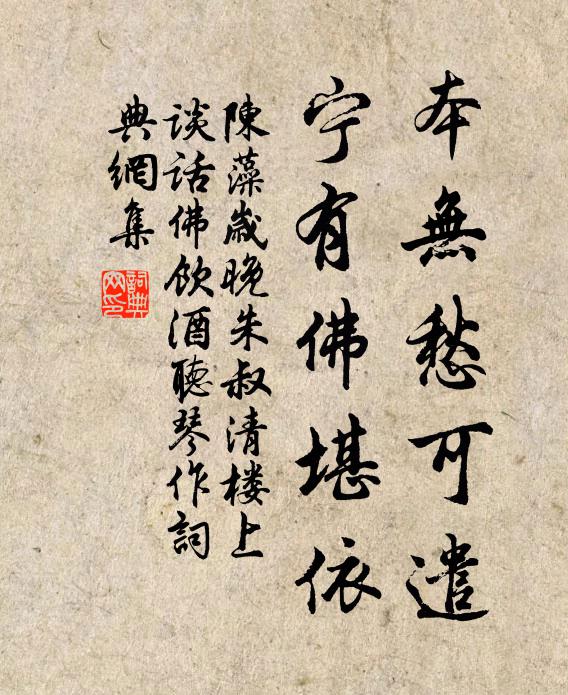 本無愁可遣
宁有佛堪依
陳藻歲晚朱叔清楼上
谈话佛飲酒聽琴作詞
典網集
詞典
网印